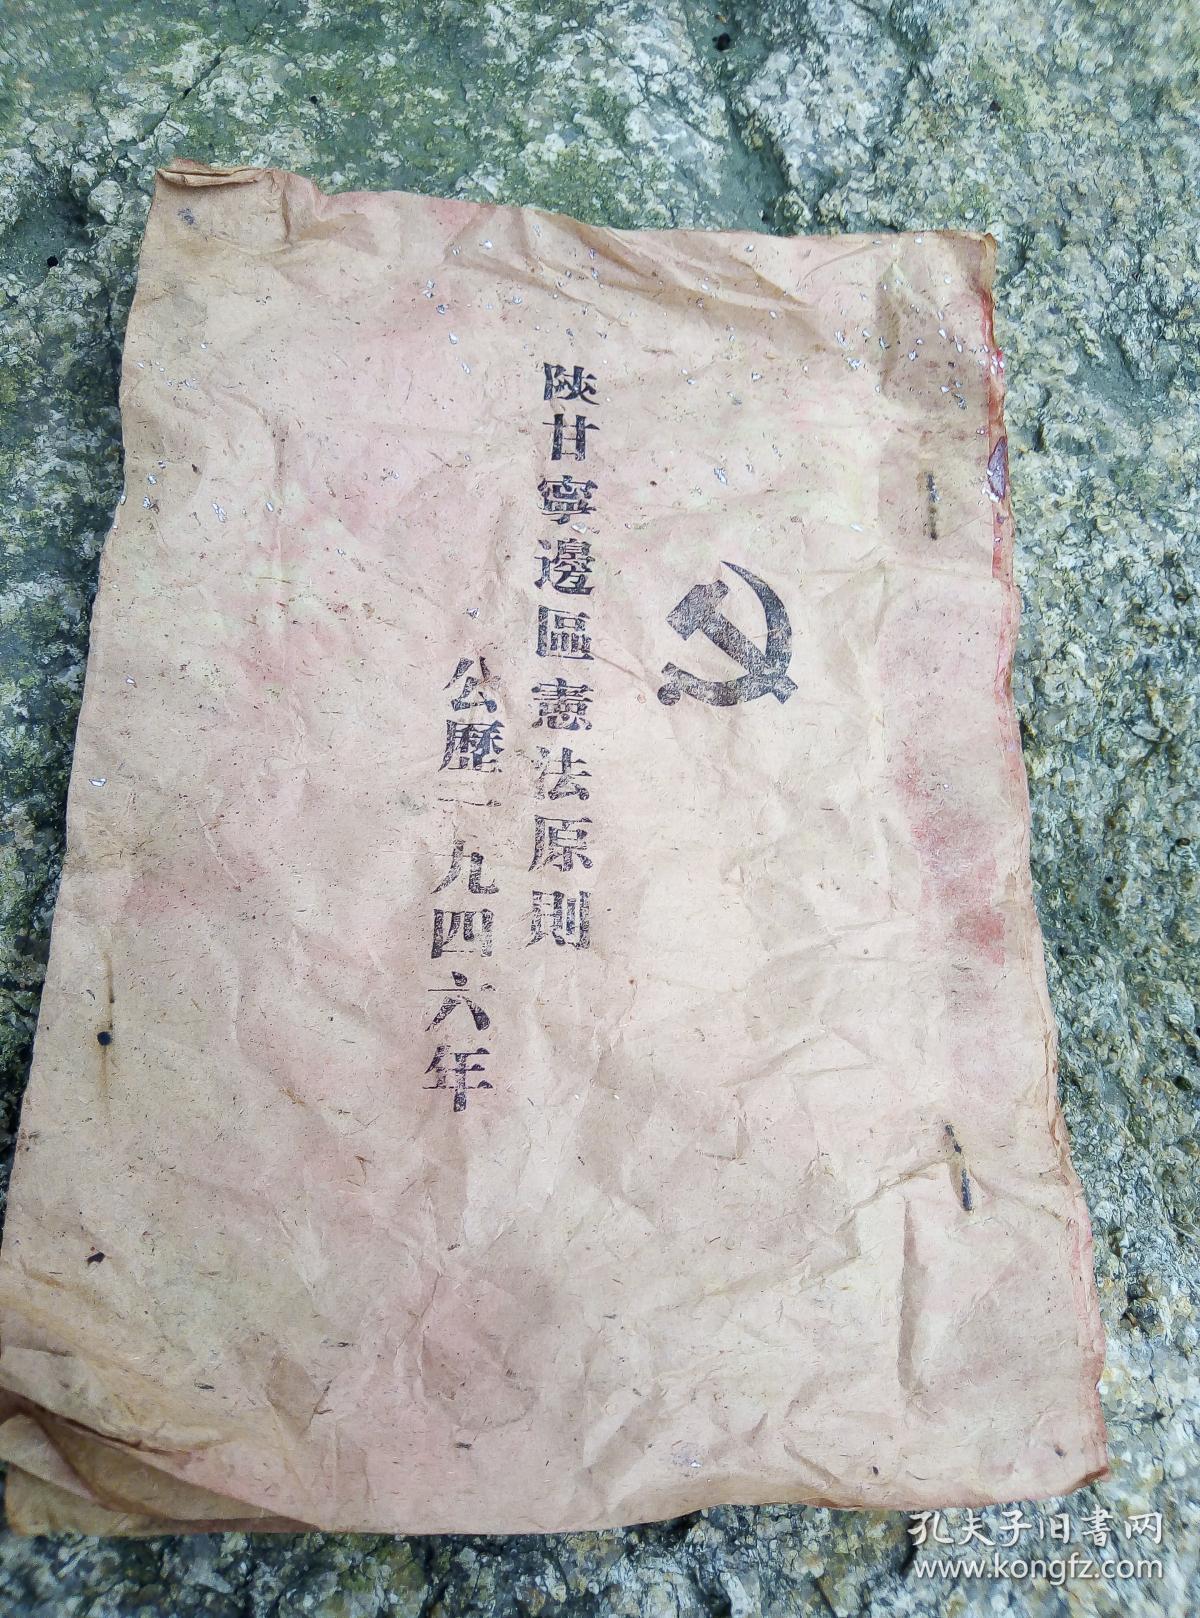 陝甘寧邊區憲法原則
公歷一九四六年
孔夫子旧書网
www.kongfz.com